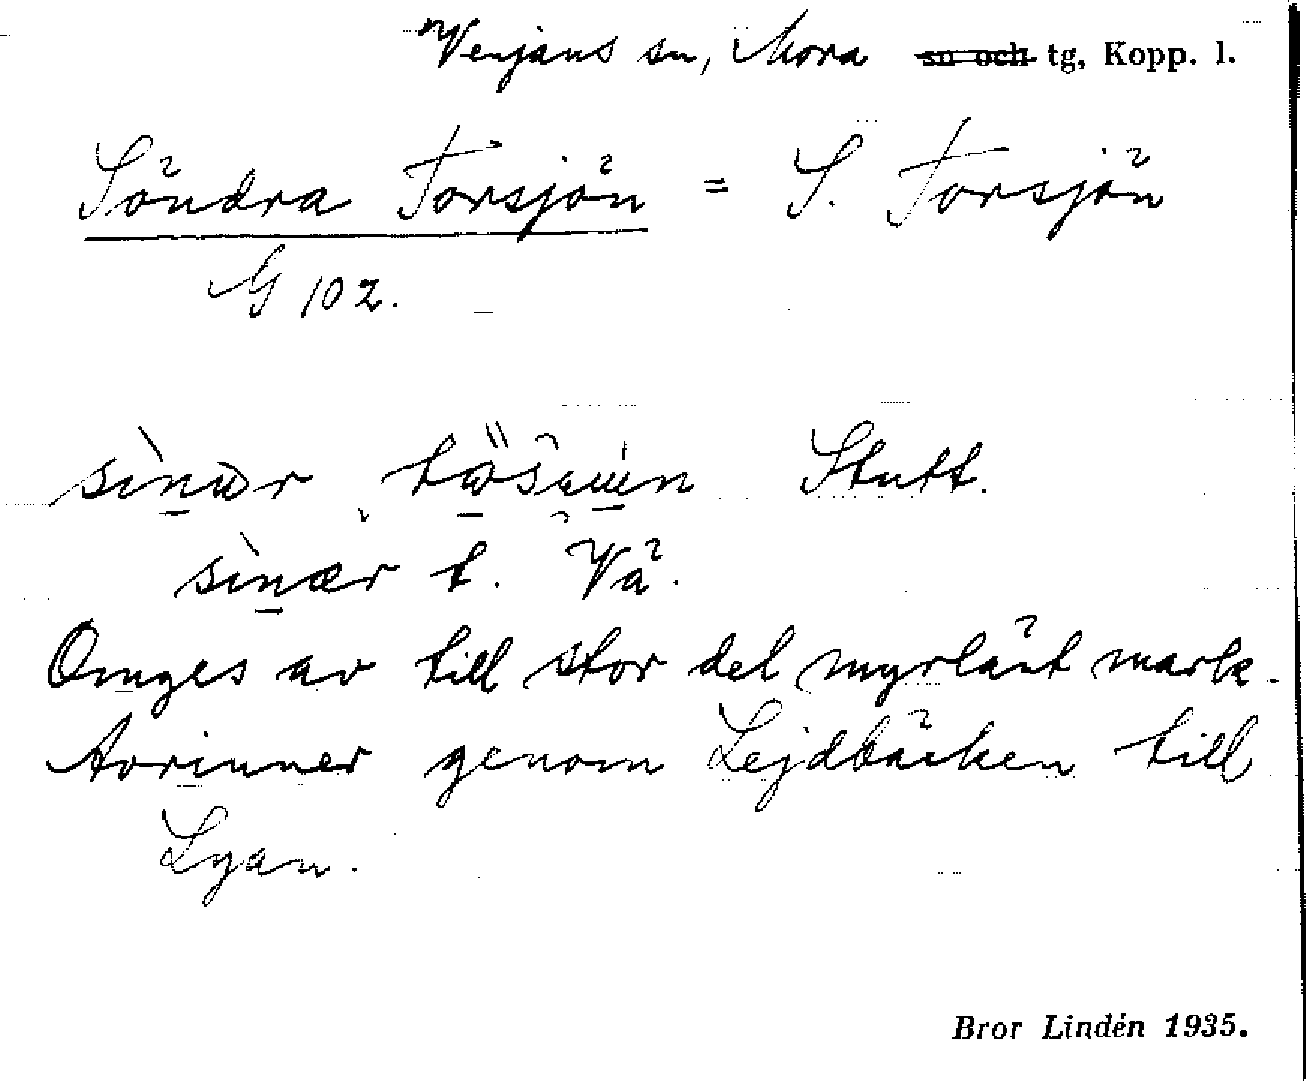 Venjans sn, Mora sn och tg, Kopp. l.
Södra Torsjön = S. Torsjön
G 102.
Stutt.
sinær t. Vå.
Omges av till stor del myrlänt mark.
Avrinner genom Lejdbäcken till
Lyan.
Bror Lindén 1935.